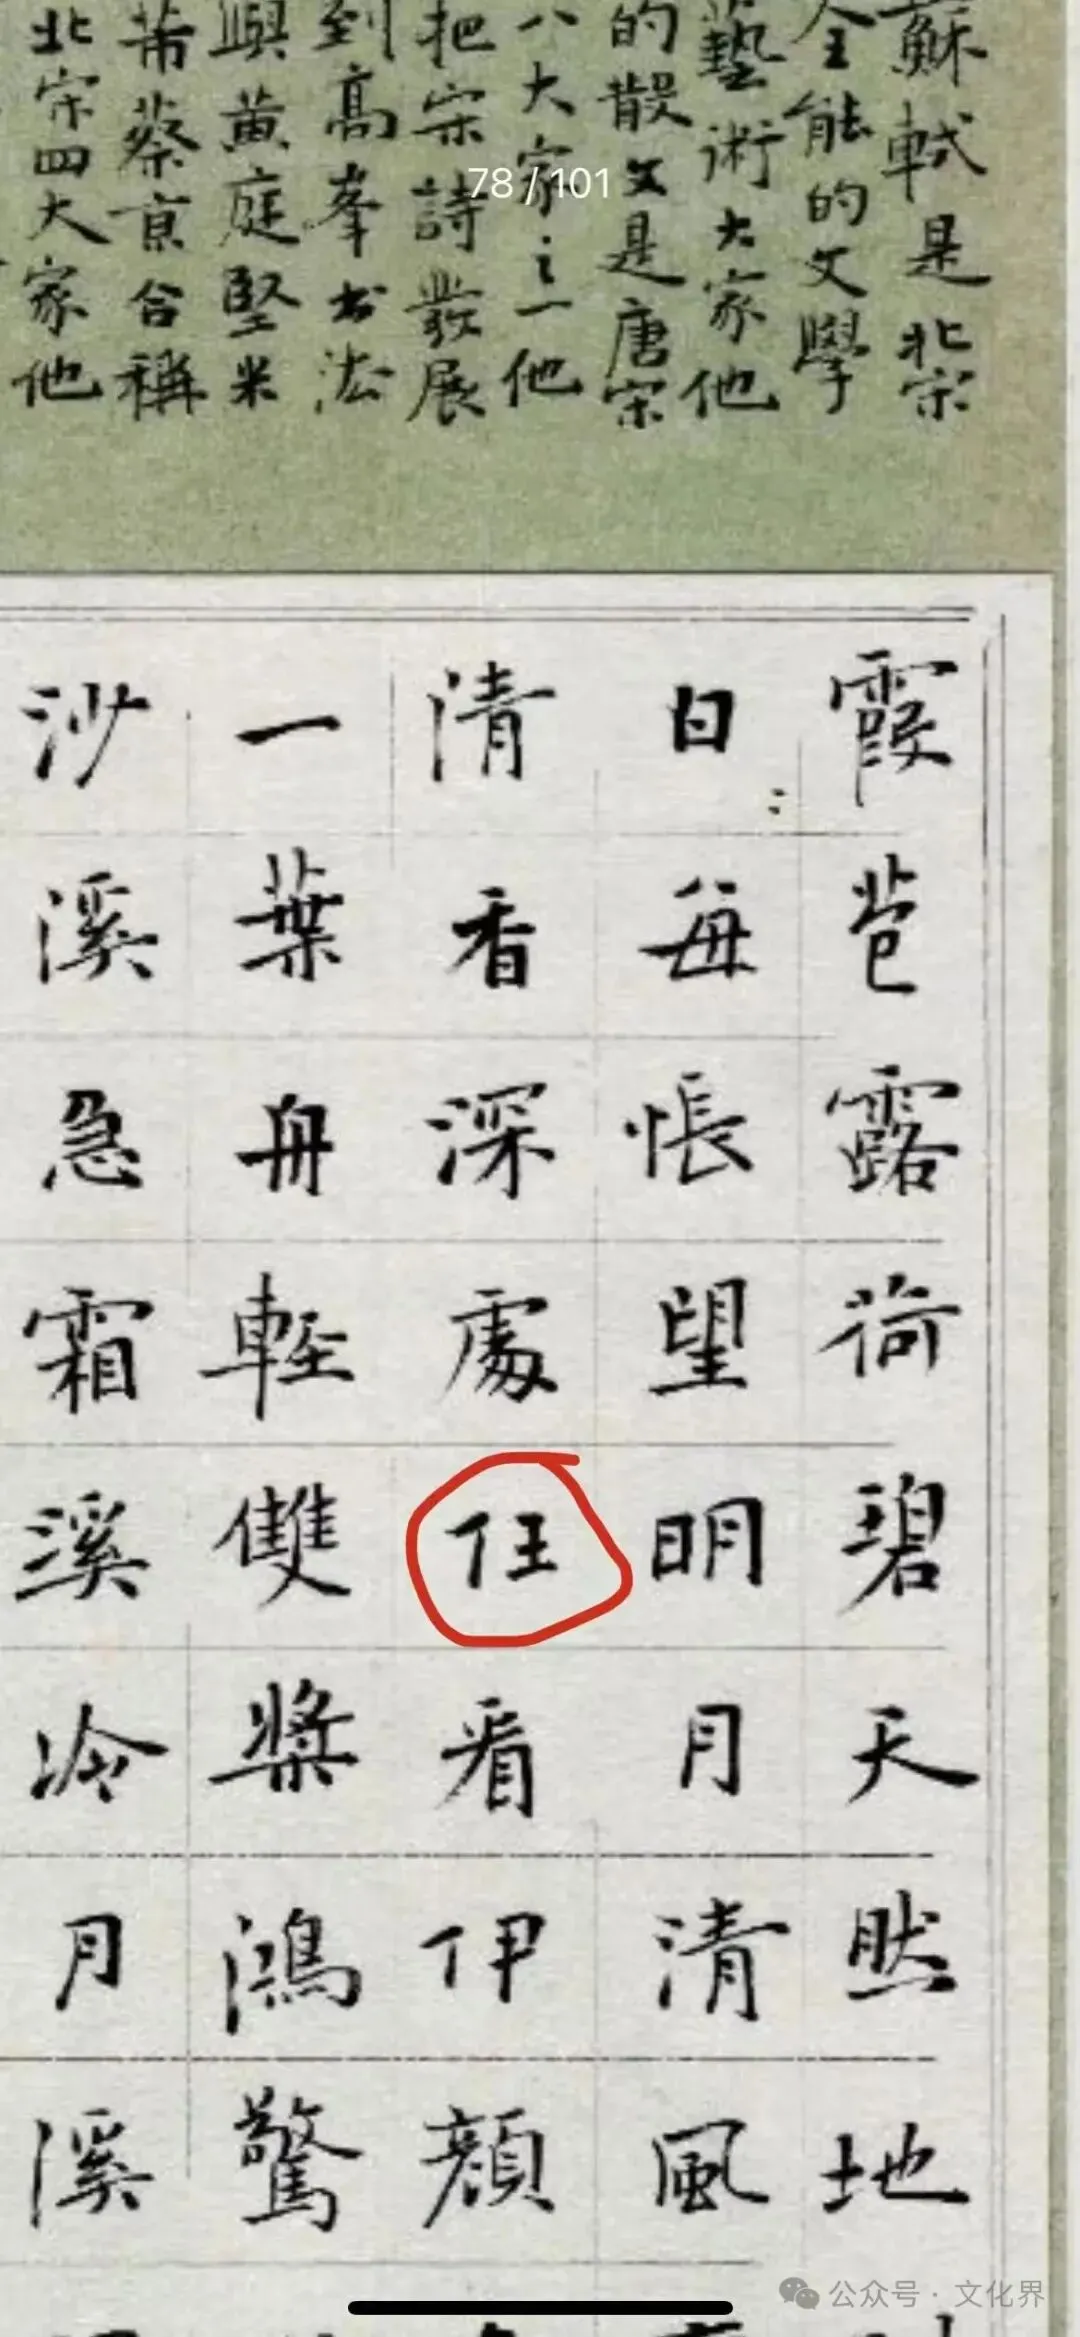 蘇軾是北宋
全能的文學
藝術大家他
的散文是唐宋
八大家之一他
把宋詩發展
到高峯書法
與黃庭堅米
芾蔡京合稱
北宋四大家他
78 / 101
霞苞露荷碧天然地
白每悵望明月清風
清香深處任看伊顏
一葉舟輕雙槳鴻驚
沙溪急霜溪冷月溪
公众号 · 文化界